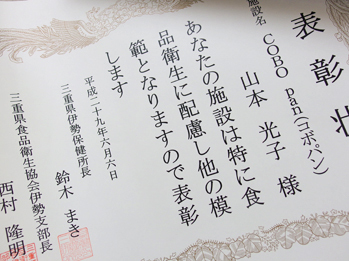 表彰状
施設名 COBO pan(コボパン)
山本 光子 様
あなたの施設は特に食
品衛生に配慮し他の模
範となりますので表彰
します
平成二十九年六月六日
三重県伊勢保健所長 鈴木 まき
三重県食品衛生協会伊勢支部長 西村 隆明